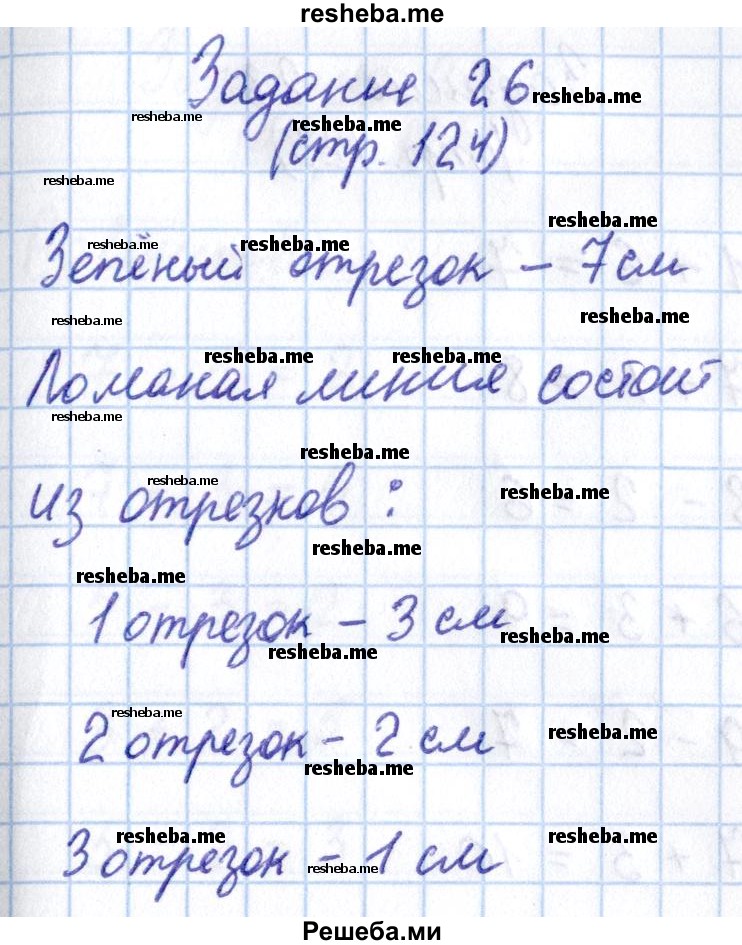 resheba.me
Задание 26 resheba.me
resheba.me resheba.me
(стр. 124)
resheba.me
resheba.me
resheba.me resheba.me
Зелёный отрезок – 7 см
resheba.me resheba.me
resheba.me resheba.me
Ломаная линия состоит
resheba.me
resheba.me
resheba.me resheba.me
из отрезков:
resheba.me
resheba.me
1 отрезок – 3 см
resheba.me resheba.me
resheba.me resheba.me
2 отрезок – 2 см
resheba.me
resheba.me resheba.me
3 отрезок – 1 см
resheba.me
Решеба.ми